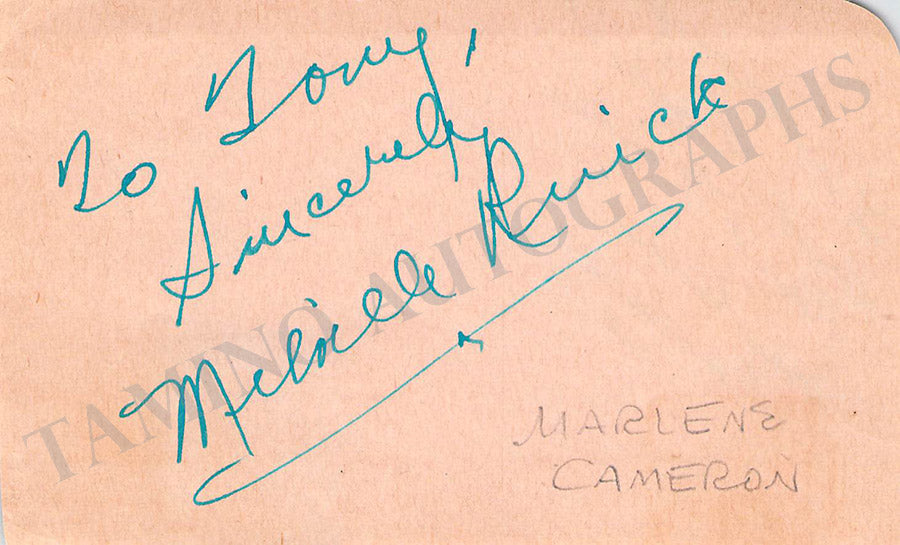 To Tony,
Sincerely,
Melville Ruick
MARLENE
CAMERON
TAMINO AUTOGRAPHS